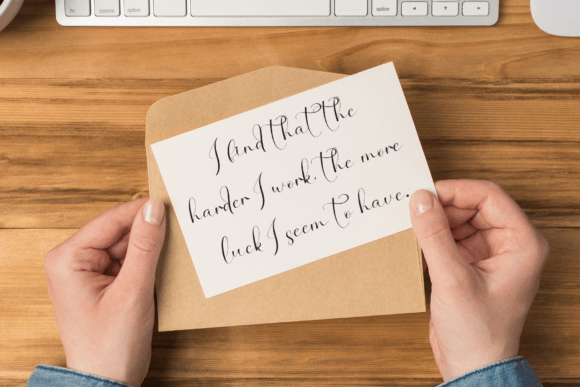 option
option
I find that the
harder I work, the more
luck I seem to have.